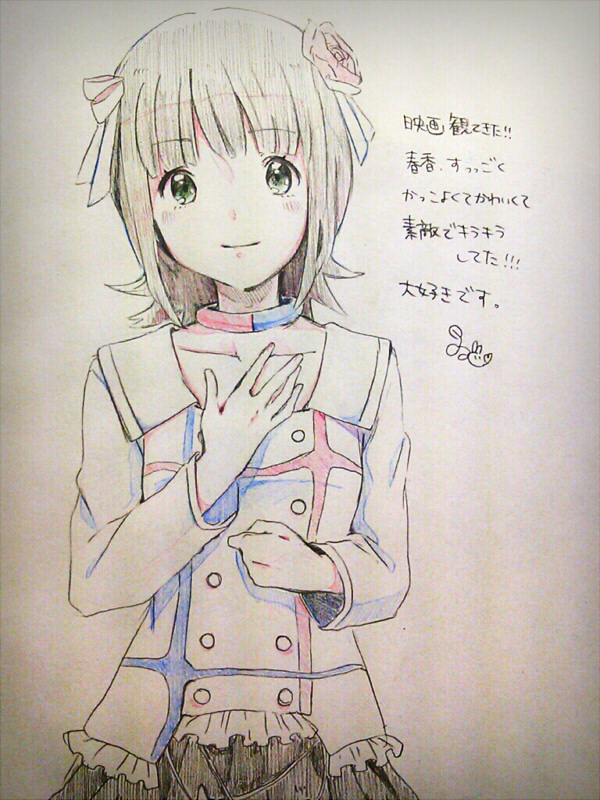 映画観てきた!!
春香、すっっごく
かっこよくてかわいくて
素敵でキラキラ
してた!!!
大好きです。